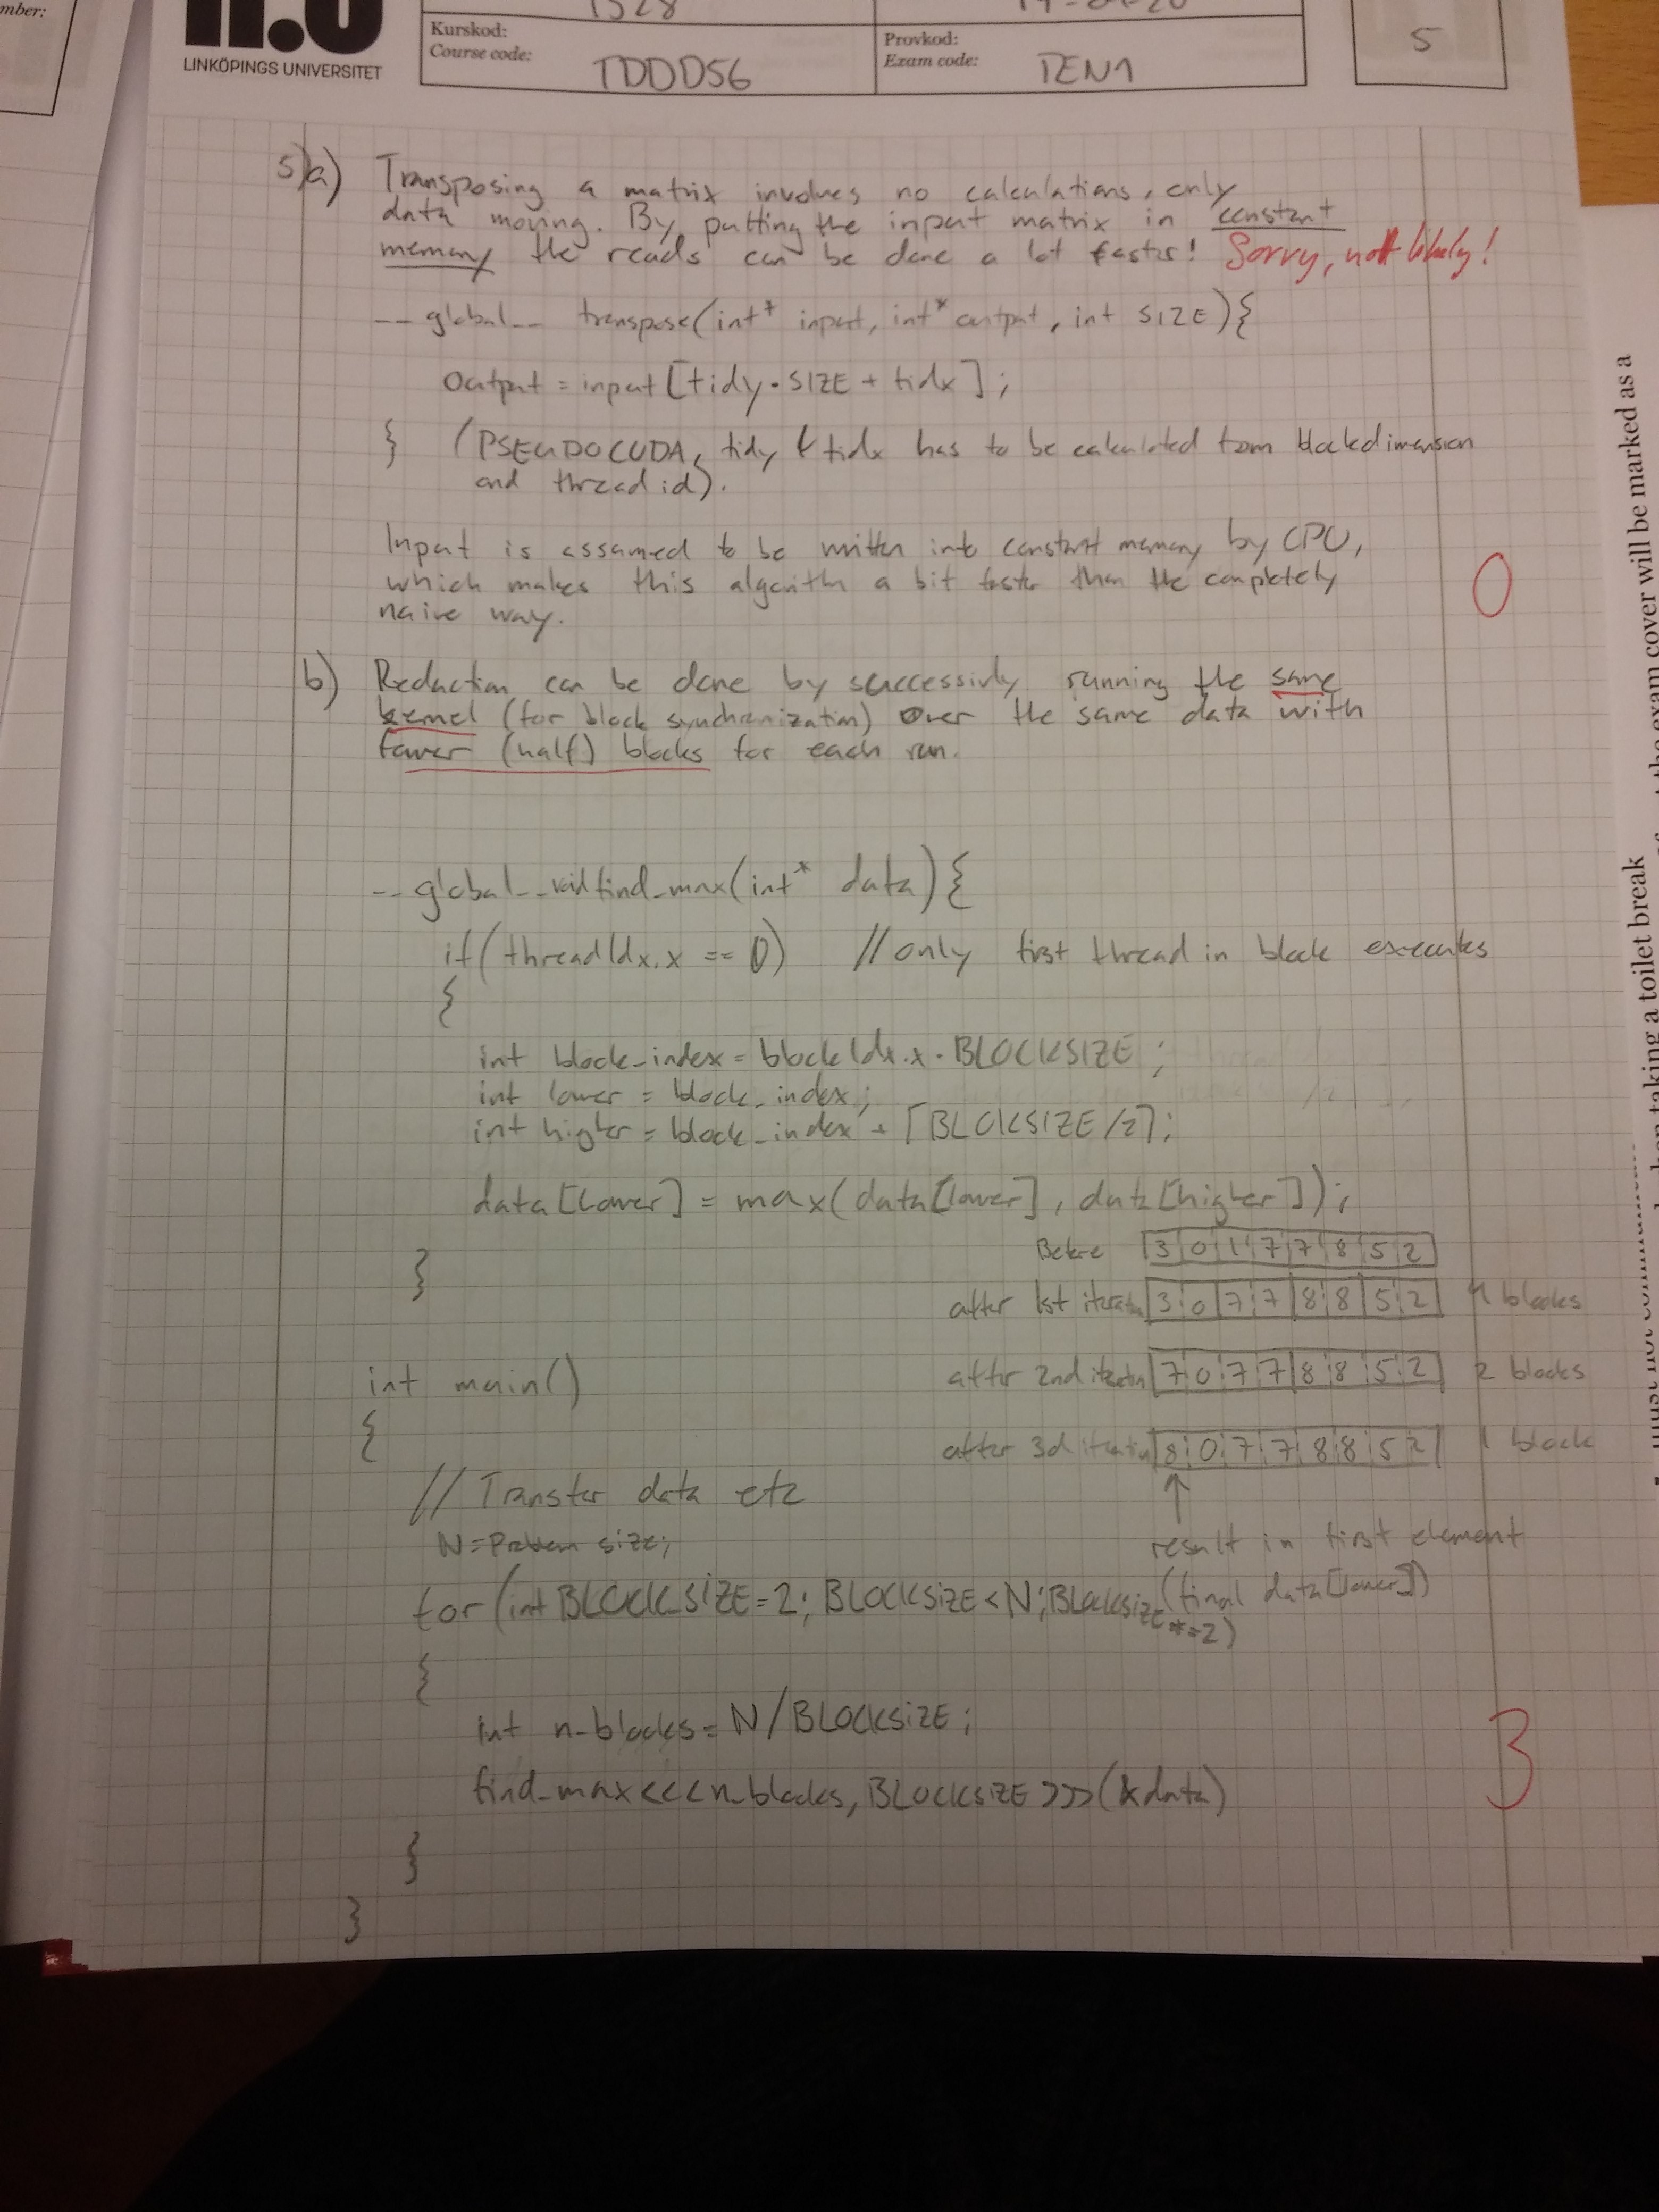 mber:
LINKÖPINGS UNIVERSITET
1528
Kurskod:
Course code:
TDDD56
Provkod:
Exam code:
TEN1
5
5)a) Transposing a matrix involves no calculations, only
data moving. By putting the input matrix in constant
memory the reads can be done a lot faster! Sorry, not likely!
__global__ transpose(int* input, int* output, int SIZE){
output = input[tidy·SIZE + tidx];
} (PSEUDOCUDA, tidy & tidx has to be calculated from blockdimension
and thread id).
Input is assumed to be written into constant memory by CPU,
which makes this algorithm a bit faster than the completely
naive way.
0
b) Reduction can be done by successivly running the same
kernel (for block synchronization) over the same data with
fewer (half) blocks for each run.
__global__ void find_max(int* data){
if(threadIdx.x == 0) //only first thread in block executes
{
int block_index = blockIdx.x · BLOCKSIZE ;
int lower = block_index;
int higher = block_index + ⌈BLOCKSIZE/2⌉;
data[lower] = max(data[lower], data[higher]);
Before 3 0 1 7 7 8 5 2
}
after 1st iteration 3 0 7 7 8 8 5 2 4 blocks
int main()
after 2nd iteration 7 0 7 7 8 8 5 2 2 blocks
{
after 3d iteration 8 0 7 7 8 8 5 2 1 block
// Transfer data etc
N = Problem size;
result in first element
(final data[lower])
for(int BLOCKSIZE=2; BLOCKSIZE<N; BLOCKSIZE*=2)
{
int n_blocks = N/BLOCKSIZE;
find_max<<<n_blocks, BLOCKSIZE>>>(&data)
3
}
}
the exam cover will be marked as a
taking a toilet break